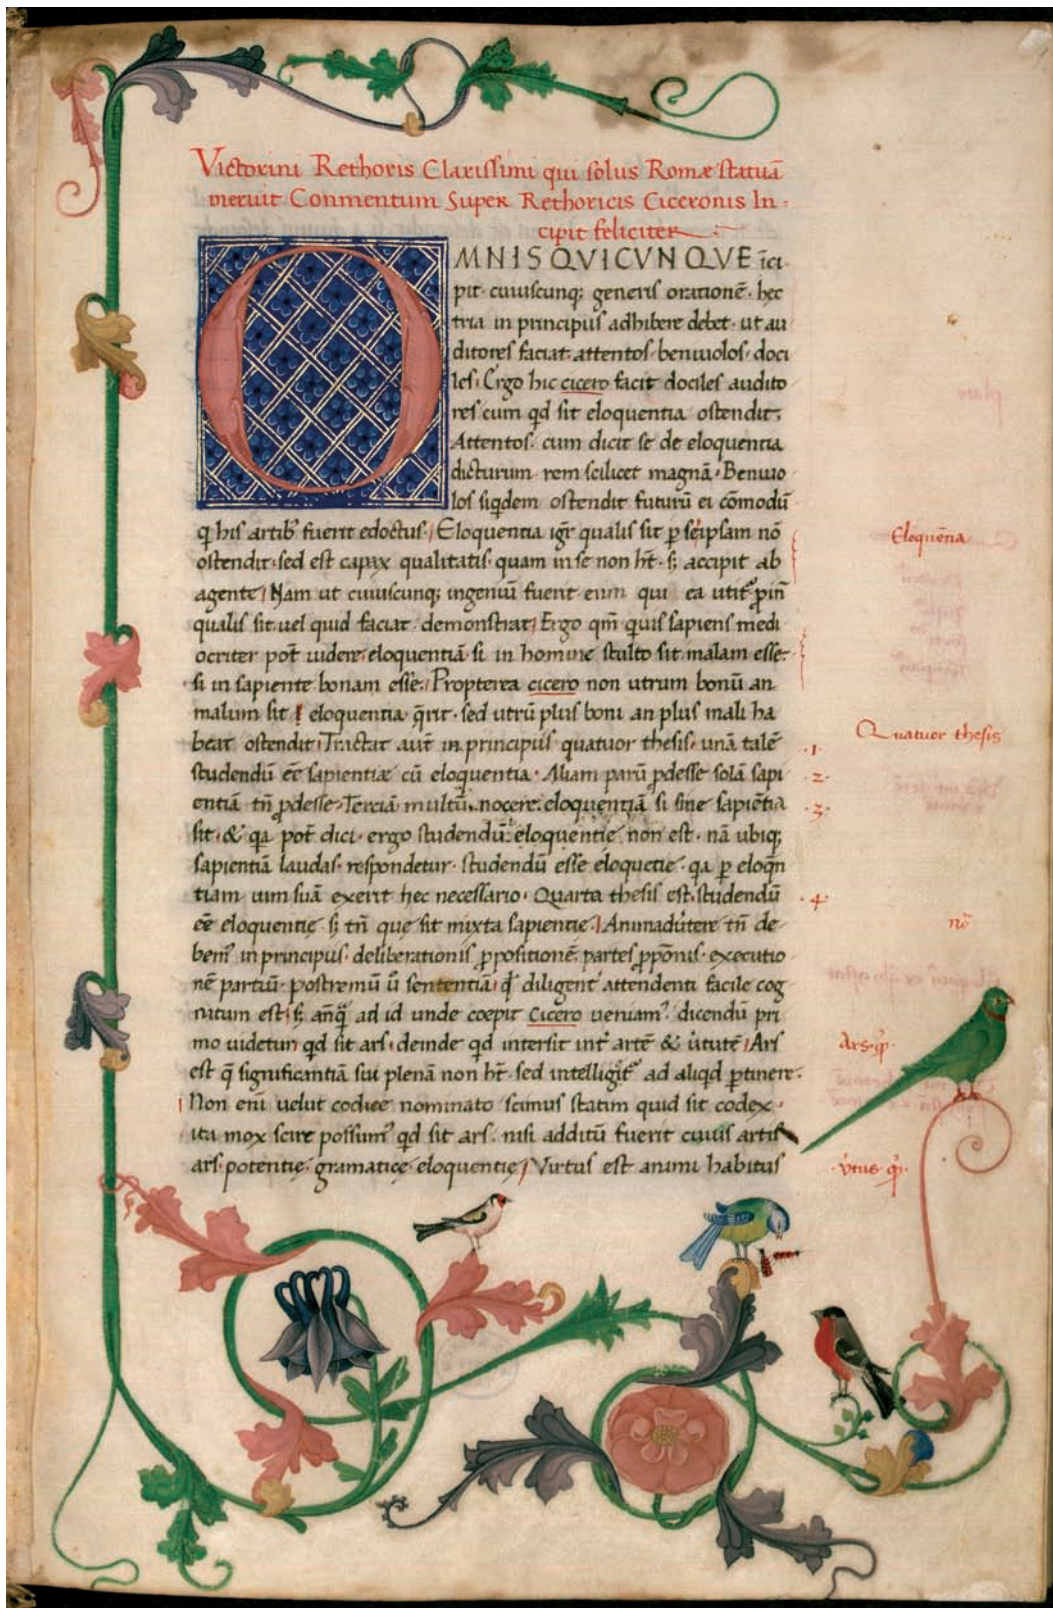 Victorini Rethoris Clarissimi qui solus Romæ statuā
meruit Conmentum Super Rethoricis Ciceronis In-
cipit feliciter
OMNIS QVICVNQVE īci
pit cuiuscunq; generis orationē hec
tria in principiis adhibere debet ut au
ditores faciat attentos beniuolos doci
les Ergo hic cicero facit dociles audito
res cum qd sit eloquentia ostendit.
Attentos cum dicit se de eloquentia
dicturum rem scilicet magnā Beniuo
los siqdem ostendit futurū ei cōmodū
q his artib' fuerit edoctus Eloquentia igr qualis sit p seipsam nō
ostendit sed est capax qualitatis quam in se non ht s; accipit ab
agente Nam ut cuiuscunq; ingeniū fuerit eum qui ea utit
qualis sit uel quid faciat demonstrat Ergo qm quis sapiens medi
ocriter pot uidere eloquentiā si in homine stulto sit malam esse
si in sapiente bonam esse Propterea cicero non utrum bonū an
malum sit eloquentia q̄rit sed utrū plus boni an plus mali ha
beat ostendit Tractat aut in principiis quatuor thesis unā talē
studendū eē sapientiæ cū eloquentia Aliam parū pdesse solā sapi
entiā tn pdesse Terciā multū nocere eloquentiā si sine sapiētia
sit & qa pot dici ergo studendū eloquentie non est nā ubiq;
sapientiā laudas respondetur studendū esse eloquētie qa p eloqn
tiam uim suā exerit hec necessario Quarta thesis est studendū
eē eloquentie s; tn que sit mixta sapientie Animaduertere tn de
bem' in principiis deliberationis ppositionē partes pponis executio
nē partiū postremū ū sententiā q diligent attendenti facile cog
nitum est s; anq̄ ad id unde coepit Cicero ueniam' dicendū pri
mo uidetur qd sit ars deinde qd intersit int artē & uirtutē Ars
est q significantiā sui plenā non ht sed intelligit ad aliqd ptinere
Non eni uelut codice nominato scimus statim quid sit codex
ita mox scire possum' qd sit ars nisi additū fuerit cuius artis
ars potentie gramatice eloquentie Virtus est animi habitus
Eloquēna
Quatuor thesis
.1.
.2.
.3.
.4.
nō
Ars q
v̄tus q